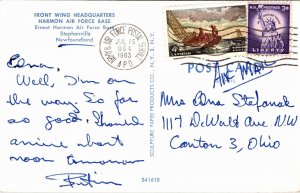 FRONT WING HEADQUARTERS
HARMON AIR FORCE BASE
Ernest Harmon Air Force Base
Stephenville
Newfoundland
AIR FORCE POSTAL
1963
A.P.O.
4¢
3¢
LIBERTY
POST
AIR MAIL
Edna,
Well, I'm on
the way. So far
so good. Should
arrive about
noon tomorrow
SCULPTURE PAPER PRODUCTS CO., N.Y.C. N.Y.
Mrs Edna Stefanak
1117 D. Wald Ave NW
Canton 3, Ohio
B41610